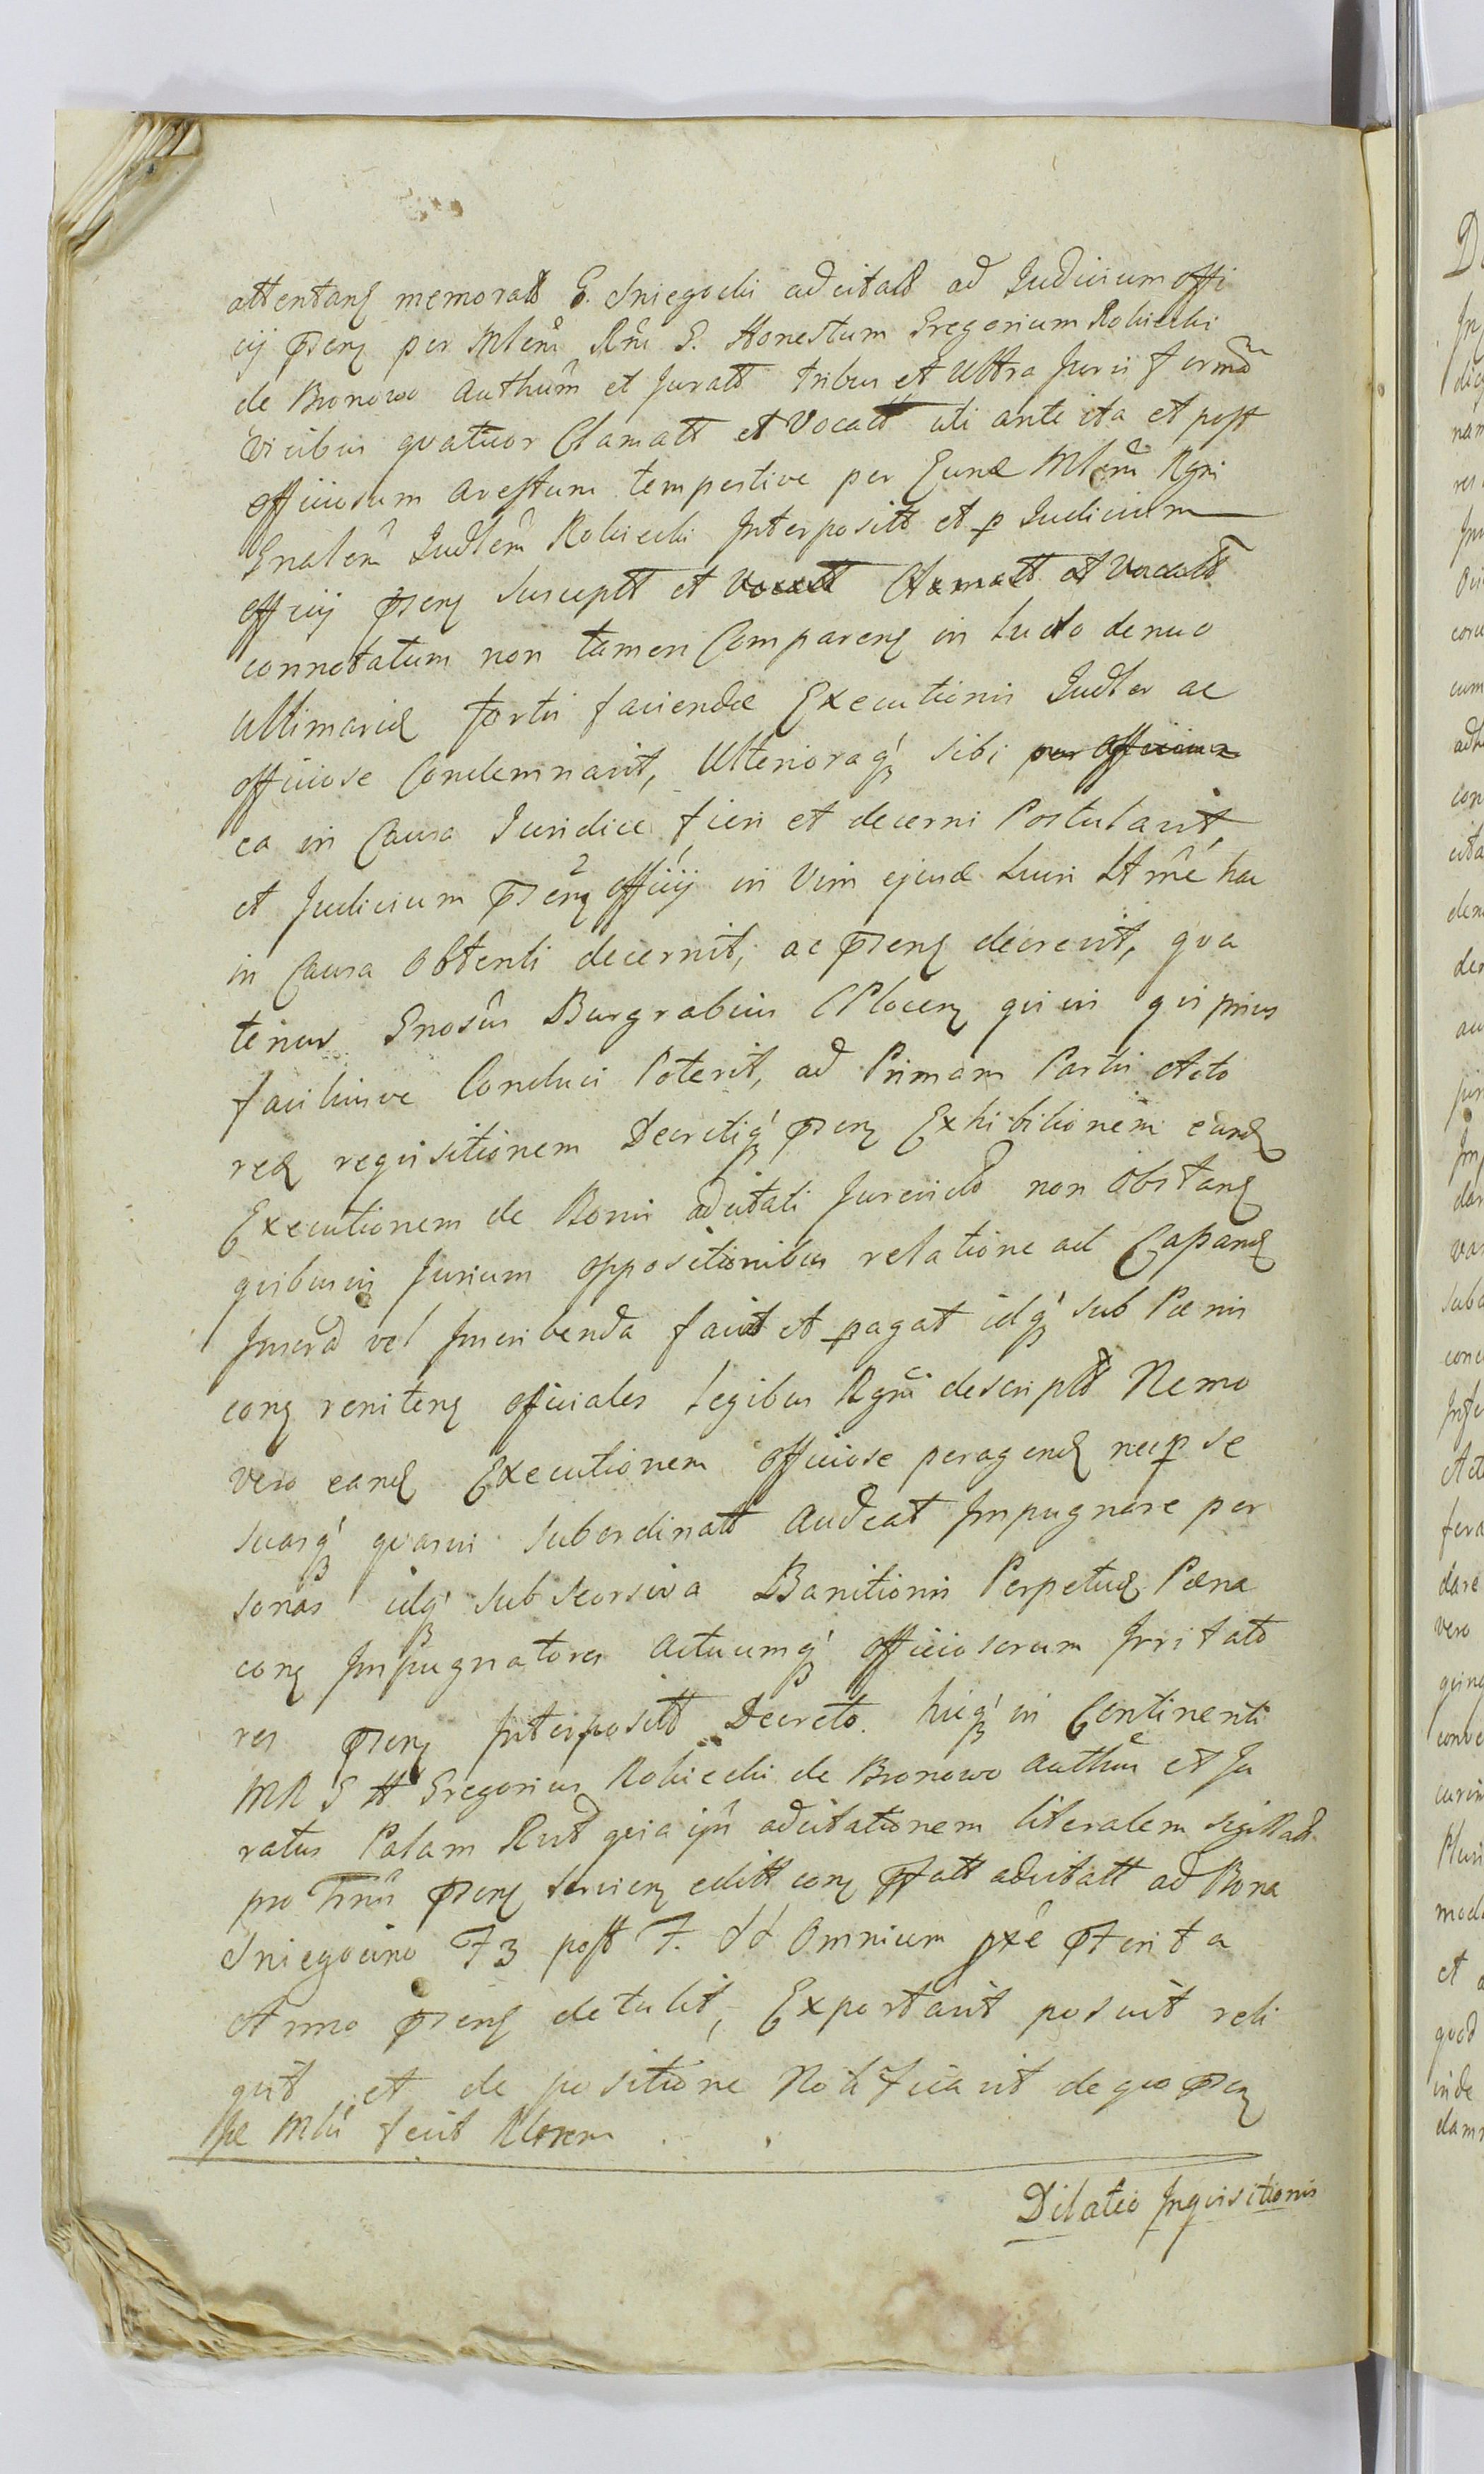 attentans memoratt G. Sniegocki adcitatt ad Judicium offi
cij pnens per Mlem Rni G. Honestum Gregorium Robiecki
de Bronowo authum et Juratt tribus et Ultra Juris forma
vicibus qvatuor Clamatt et Vocatt uti ante ita et post
officiosum arestum tempestive per Eund Mlem Rgni
Gnalem Judlem Robiecki Interpositt et p Judicium
officij pnens susceptt et Vocatt Clamatt et Vocatt
connotatum non tamen Comparens in Lucro denuo
Ultimariae fortis faciendae Executionis Judler ac
officiose Condemnavit, Ulterioraq' sibi per officium
ea in Causa Juridice fieri et decerni Postulavit,
et Judicium pnens officij in Vim ejusd Lucri Ltme hac
in Causa obtenti decernit, ac pnens decrevit, qva
tenus Gnosus Burgrabius CPlocens qvivis qvi prius
faciliusve Conduci Poterit, ad Primam Partis Acto
rea reqvisitionem Decretiq' pnens Exhibitionem eand
Executionem de Bonis adcitati Jurevicto non obstans
qvibusvis Jurium oppositionibus relatione ad Capand
Inserd vel Inscribenda faciat et pagat idq' sub Paenis
cons renitens officiales Legibus Rgni descriptt Nemo
vero eand Executionem officiose peragend nec p se
suasq' qvasvis subordinatt audeat Impugnare per
sonas idq' sub seorsiva Banitionis Perpetuae Paena
cons Impugnatores actuumq' officiosorum Irritato
res pnens Interpositt Decreto. hicq' in Continenti
MR G H Gregorius Robiecki de Bronowo authus et Ju
ratus Palam Rvit qvia ipse adcitationem literalem sigillatt
pro Tnis pnens serviens editt cons pfatt adcitatt ad Bona
Sniegocino F 3 post F. SS Omnium pxe pterita
Anno pnens detulit, Exportavit posuit reli
qvit et de positione Notificavit de qvo pnens
pe Mlis fecit Rlonem
Dilatio Inqvisitionis